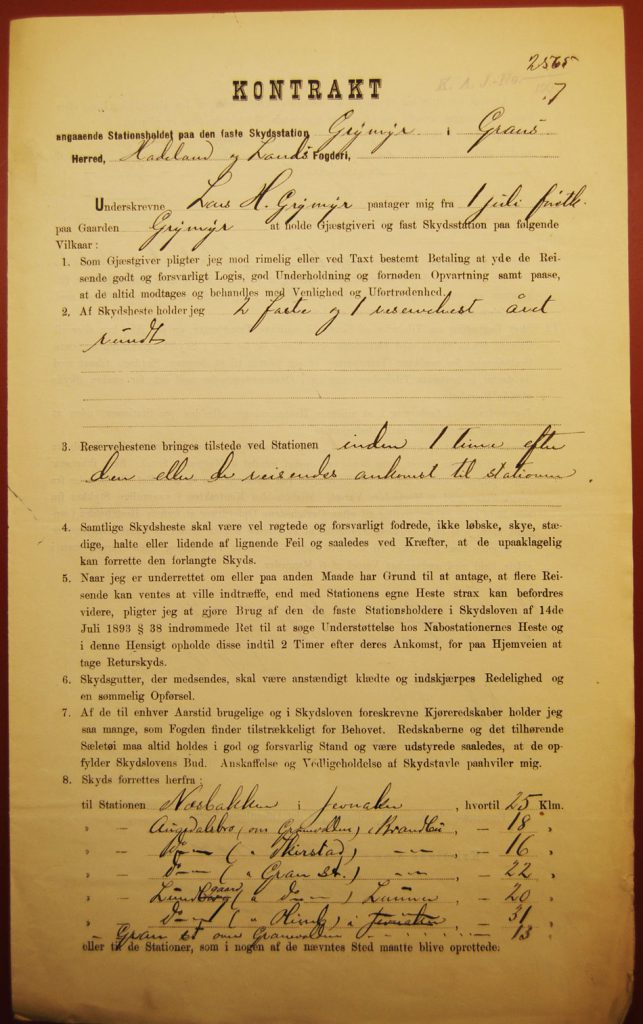 2565
7
KONTRAKT
angaaende Stationsholdet paa den faste Skydsstation Grymyr i Grans
Herred, Hadeland og Lands Fogderi,
Underskrevne Lars H. Grymyr paatager mig fra 1 juli
paa Gaarden Grymyr at holde Gjæstgiveri og fast Skydsstation paa følgende
Vilkaar:
1. Som Gjæstgiver pligter jeg mod rimelig eller ved Taxt bestemt Betaling at yde de Rei-
sende godt og forsvarligt Logis, god Underholdning og fornøden Opvartning samt paase,
at de altid modtages og behandles med Venlighed og Ufortrødenhed.
2. Af Skydsheste holder jeg 2 faste og 1 reservehest året
rundt
3. Reservehestene bringes tilstede ved Stationen inden 1 time efter
den eller de reisendes ankomst til stationen.
4. Samtlige Skydsheste skal være vel røgtede og forsvarligt fodrede, ikke løbske, skye, stæ-
dige, halte eller lidende af lignende Feil og saaledes ved Kræfter, at de upaaklagelig
kan forrette den forlangte Skyds.
5. Naar jeg er underrettet om eller paa anden Maade har Grund til at antage, at flere Rei-
sende kan ventes at ville indtræffe, end med Stationens egne Heste strax kan befordres
videre, pligter jeg at gjøre Brug af den de faste Stationsholdere i Skydsloven af 14de
Juli 1893 § 38 indrømmede Ret til at søge Understøttelse hos Nabostationernes Heste og
i denne Hensigt opholde disse indtil 2 Timer efter deres Ankomst, for paa Hjemveien at
tage Returskyds.
6. Skydsgutter, der medsendes, skal være anstændigt klædte og indskjærpes Redelighed og
en sømmelig Opførsel.
7. Af de til enhver Aarstid brugelige og i Skydsloven foreskrevne Kjøreredskaber holder jeg
saa mange, som Fogden finder tilstrækkeligt for Behovet. Redskaberne og det tilhørende
Sæletøi maa altid holdes i god og forsvarlig Stand og være udstyrede saaledes, at de op-
fylder Skydslovens Bud. Anskaffelse og Vedligeholdelse af Skydstavle paahviler mig.
8. Skyds forrettes herfra:
til Stationen Næsbakken i Jevnaker, hvortil 25 Klm.
" - Augedalsbro (om Granvollen) i Brandbu, - 18 "
" - Do (" Skirstad) - 16 "
" - do (" Gran st.) - 22 "
" - Lundgaard (" do) Lunner - 20 "
" - do (" ) i Jevnaker - 31 "
" - Gran st om Granvollen - 13 "
eller til de Stationer, som i nogen af de nævntes Sted maatte blive oprettede.